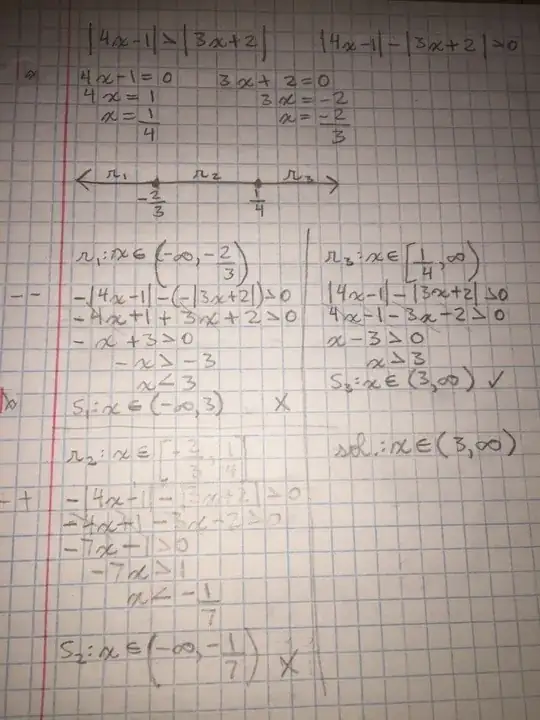 |4x-1|>|3x+2| |4x-1|-|3x+2|>0
4x-1=0 3x+2=0
4x=1 3x=-2
x=1/4 x=-2/3
r₁ r₂ r₃
-2/3 1/4
r₁:x∈(-∞,-2/3)
-- -|4x-1|-(-|3x+2|)>0
-4x+1+3x+2>0
-x+3>0
-x>-3
x<3
S₁:x∈(-∞,3) X
r₂:x∈[-2/3,1/4]
-+ -|4x-1|-|3x+2|>0
-4x+1-3x-2>0
-7x-1>0
-7x>1
x<-1/7
S₂:x∈(-∞,-1/7) X
r₃:x∈[1/4,∞)
|4x-1|-|3x+2|>0
4x-1-3x-2>0
x-3>0
x>3
S₃:x∈(3,∞) ✓
sol.:x∈(3,∞)